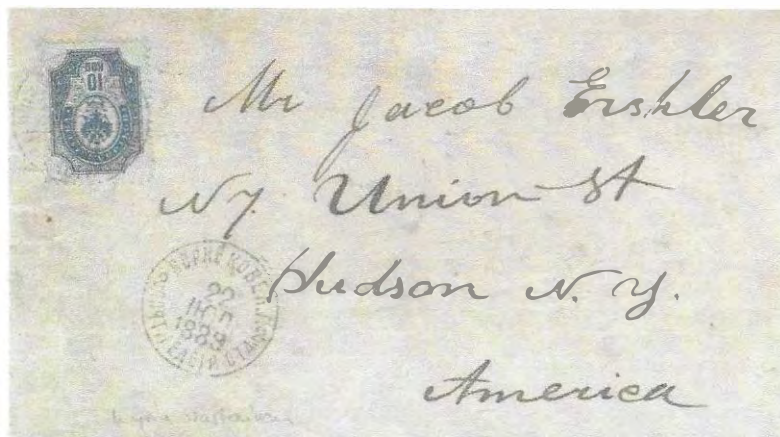 Mr Jacob Ershler
N7. Union St
Hudson N. Y.
America
10
22
1889